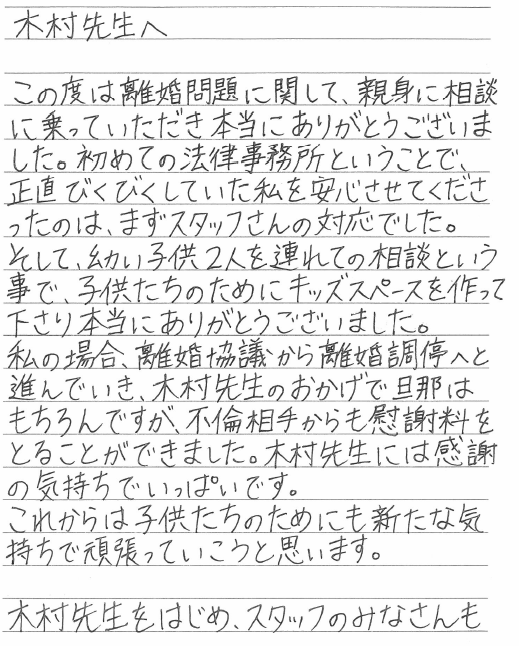 木村先生へ
この度は離婚問題に関して、親身に相談
に乗っていただき本当にありがとうございま
した。初めての法律事務所ということで、
正直びくびくしていた私を安心させてくださ
ったのは、まずスタッフさんの対応でした。
そして、幼い子供2人を連れての相談という
事で、子供たちのためにキッズスペースを作って
下さり本当にありがとうございました。
私の場合、離婚協議から離婚調停へと
進んでいき、木村先生のおかげで旦那は
もちろんですが、不倫相手からも慰謝料を
とることができました。木村先生には感謝
の気持ちでいっぱいです。
これからは子供たちのためにも新たな気
持ちで頑張っていこうと思います。
木村先生をはじめ、スタッフのみなさんも